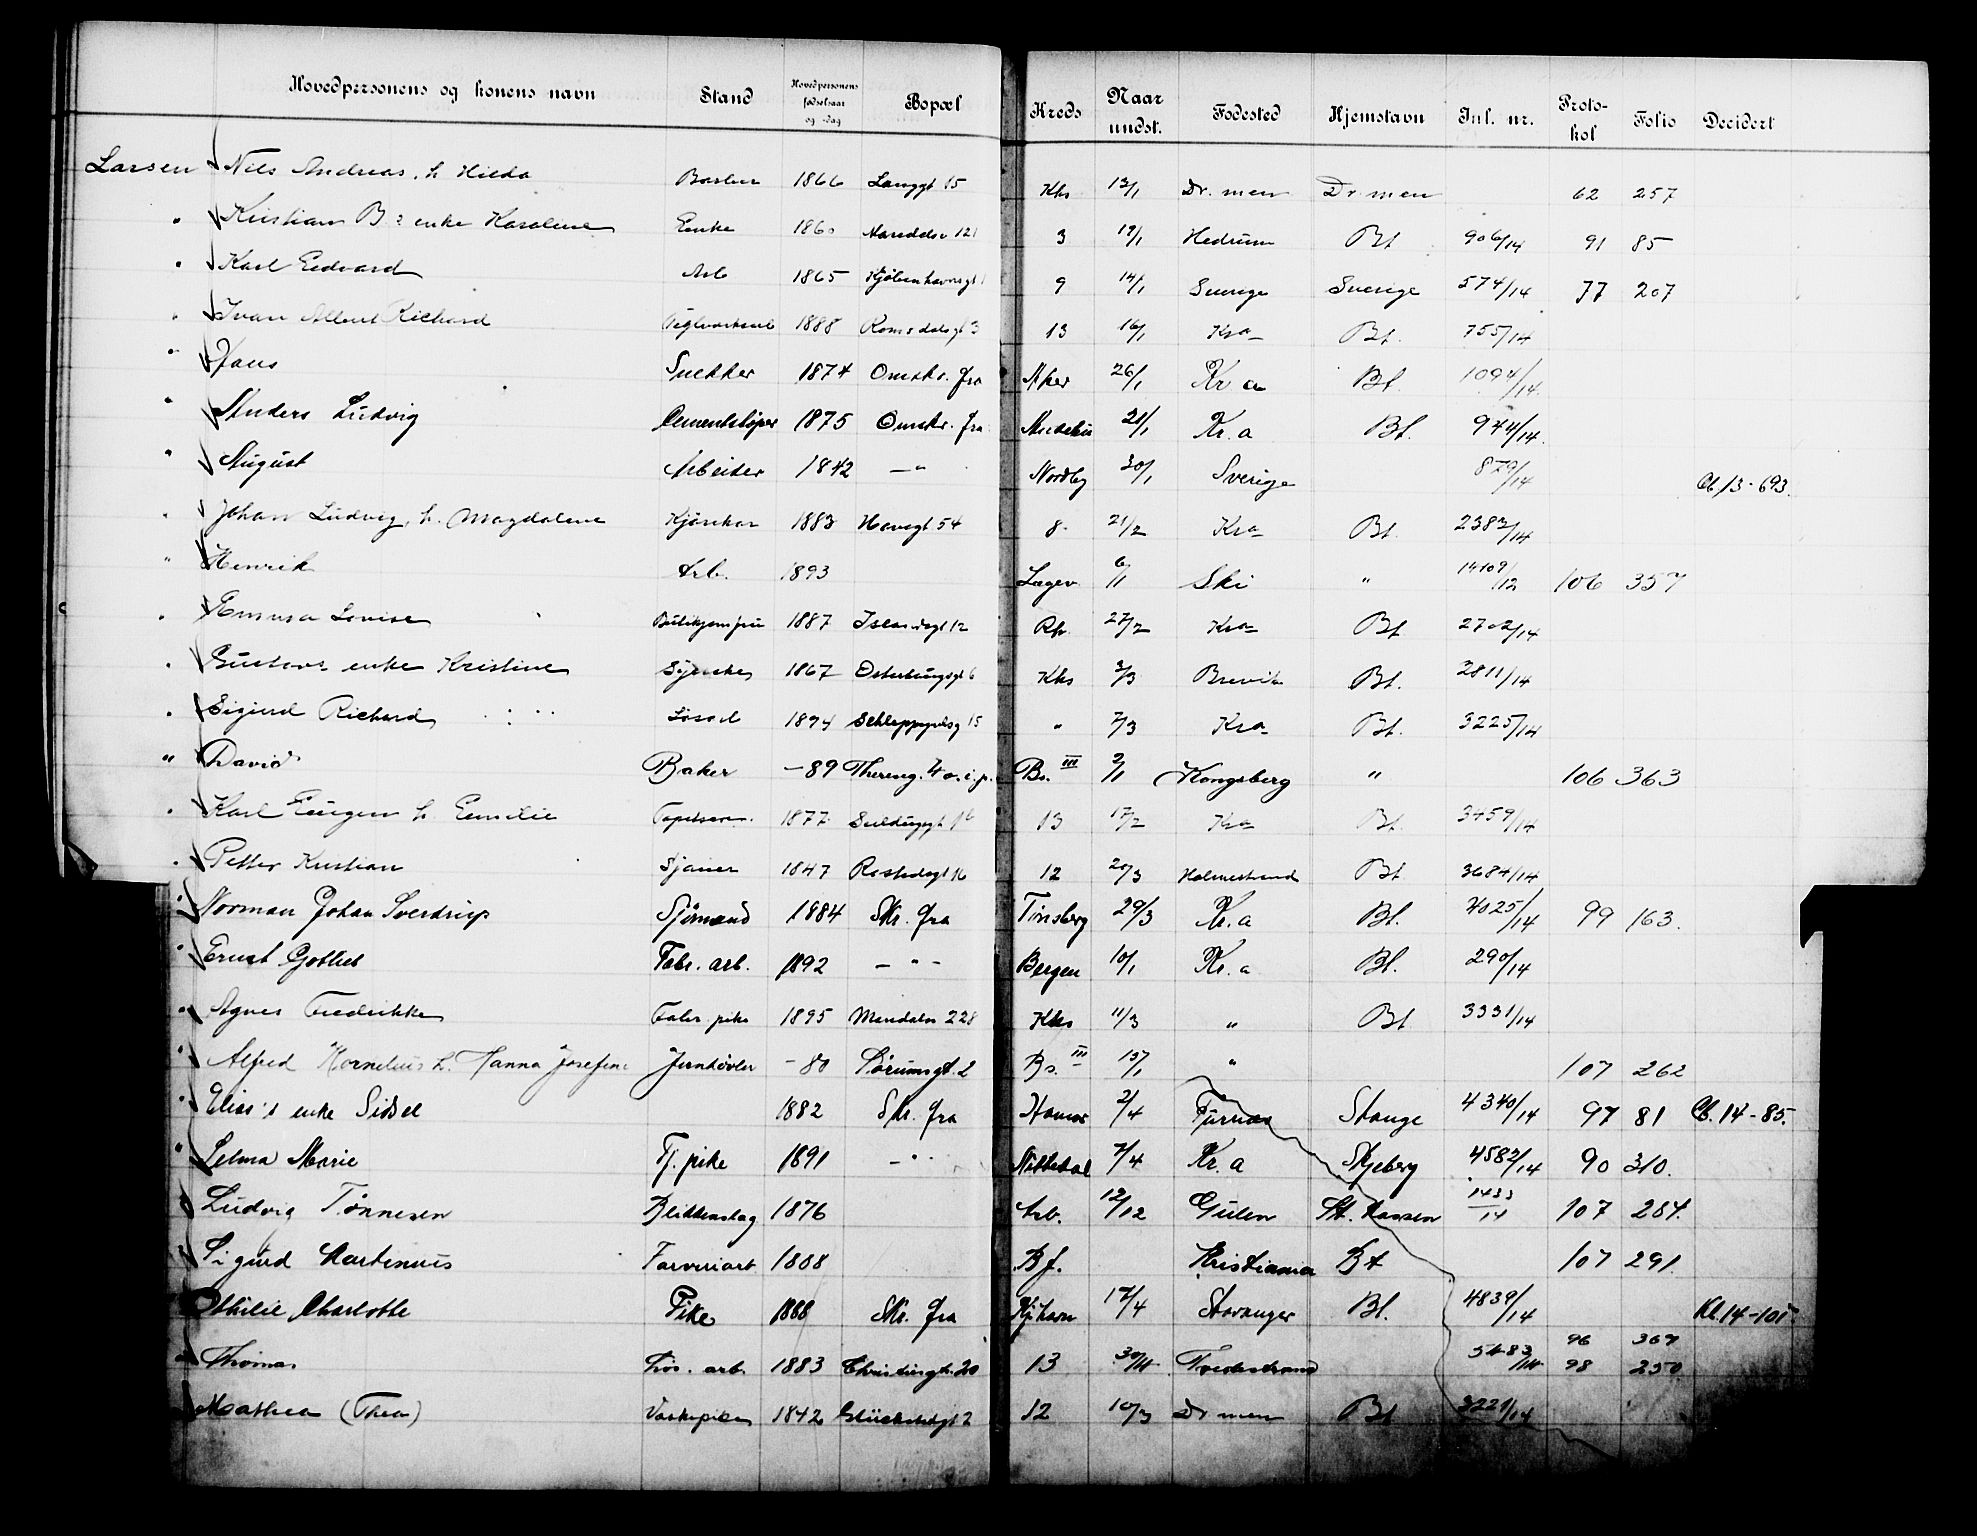 Hovedpersonens og konens navn Stand Hovedpersonens fødselsaar og -dag Bopæl Kreds Naar undst. Fødested Hjemstavn Jnl. nr. Proto-kol Folio Decidert
Larsen Nils Andreas, h. Hilda Barber 1866 Langgt 15 Khs 13/1 Dr.men Dr men 62 257
" Kristian B's enke Karoline Enke 1860 Maridalsv 121 3 19/1 Hedrum Bt 906/14 91 85
" Karl Edvard Arb 1865 Kjøbenhavnsgt 9 14/1 Sverige Sverige 574/14 77 207
" Ivan Albert Richard Teglverksarb 1888 Romsdalsgt 3 13 16/1 Kra Bt. 755/14
" Hans Snekker 1874 Omskr. fra Aker 26/1 Kr a Bt. 1094/14
" Anders Ludvig Cementstøper 1875 Omskr. fra 21/1 Kr. a Bt. 944/14.
" August Arbeider 1842 — " Nordby 30/1 Sverige 879/14 Cb. 13 - 693.
" Johan Ludvig, h. Magdalene Kjørekar 1883 Havegt 54 8 21/2 Kra Bt. 2383/14
" Henrik Arb. 1893 Lager 6/1 Ski " 14109/12 106 357
" Emma Lovise 1887 Islandsgt 12 27/2 Kra Bt 2702/14
" Gustavs enke Kristine Syerske 1867 Osterhausgt 6 Khs 3/3 Brevik Bt. 2811/14
" Sigurd Richard Løsarb 1894 Schleppegrellsg 15 " 7/3 Kra Bt. 3225/14
" David Baker — 89 Thereseg. 40. i. p. Bs. III 2/1 Kongsberg " 106 363
" Karl Eugen h. Emilie Tapetserer 1877 13 17/2 Kra Bt. 3459/14
" Petter Kristian Sjauer 1847 Rostedsgt 16 12 20/3 Holmestrand Bt. 3684/14
" Norman Johan Sverdrup Sjømand 1884 Skr. fra Tønsberg 29/3 Kr. a Bt. 4025/14 99 163.
" Ernst Gotlieb Fabr. arb. 1892 — " — Bergen 10/1 Kr. a Bt. 290/14
" Agnes Fredrikke Fabr. pike 1895 Maridalsv 228 Khs 11/3 " Bt 3331/14
" Alfred Kornelius h. Hanna Josefine Jernhøvler — 80 Sørumsgt. 2 Bs. III 15/1 " 107 262
" Elias's enke Sidsel 1882 Skr. fra Hamar 2/4 Furnes Stange 4340/14 97 81 Cb. 14 - 85.
" Selma Marie Tj. pike 1891 — " Nittedal 7/4 Kr. a Skjeberg 4582/14 90 310.
" Ludvig Tønnesen Blikkenslag 1876 Arb. 12/12 Gulen 1433/14 107 284.
" Sigurd Martinius Farveriarb 1888 Bf. Kristiania Bt 107 291
" Othilie Charlotte Pike 1888 Skr. fra Kj.havn 17/4 Stavanger Bt. 4839/14 Kb. 14 - 101
" Thomas Løs. arb. 1883 Christiesgt. 20 13 30/4 Tvedestrand 5483/14 96 98 367 250
" Mathea (Thea) Vaskepike 1842 Glückstadgt 2 12 10/3 Dr men Bt 3221/14